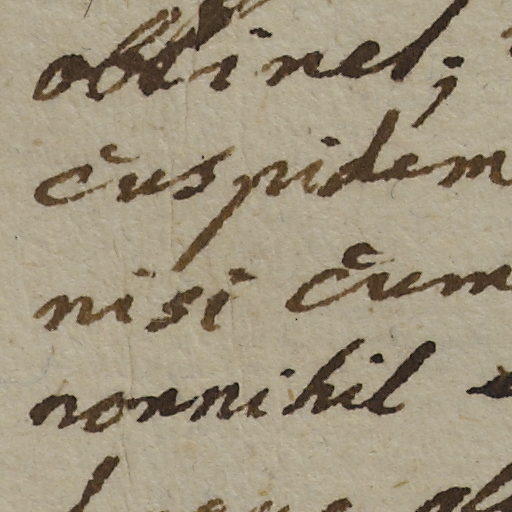 obtinet;
cuspidem
nisi cum
nonnihil